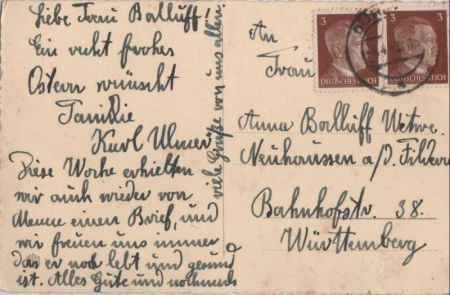 Liebe Frau Bolluff!
Ein recht frohes
Ostern wünscht
Familie
Karl Ulmer
Diese Woche erhielten
wir auch wieder von
einen Brief, und
wir freuen uns immer
das er noch lebt und gesund
ist. Alles Gute und nochmals
viele Grüße von uns allen
An
Frau
Anna Bolluff Witwe.
Neuhaussen a/d. Fildern
Bahnhofstr. 38.
Württemberg
3
3
DEUTSCHES REICH
DEUTSCHES REICH